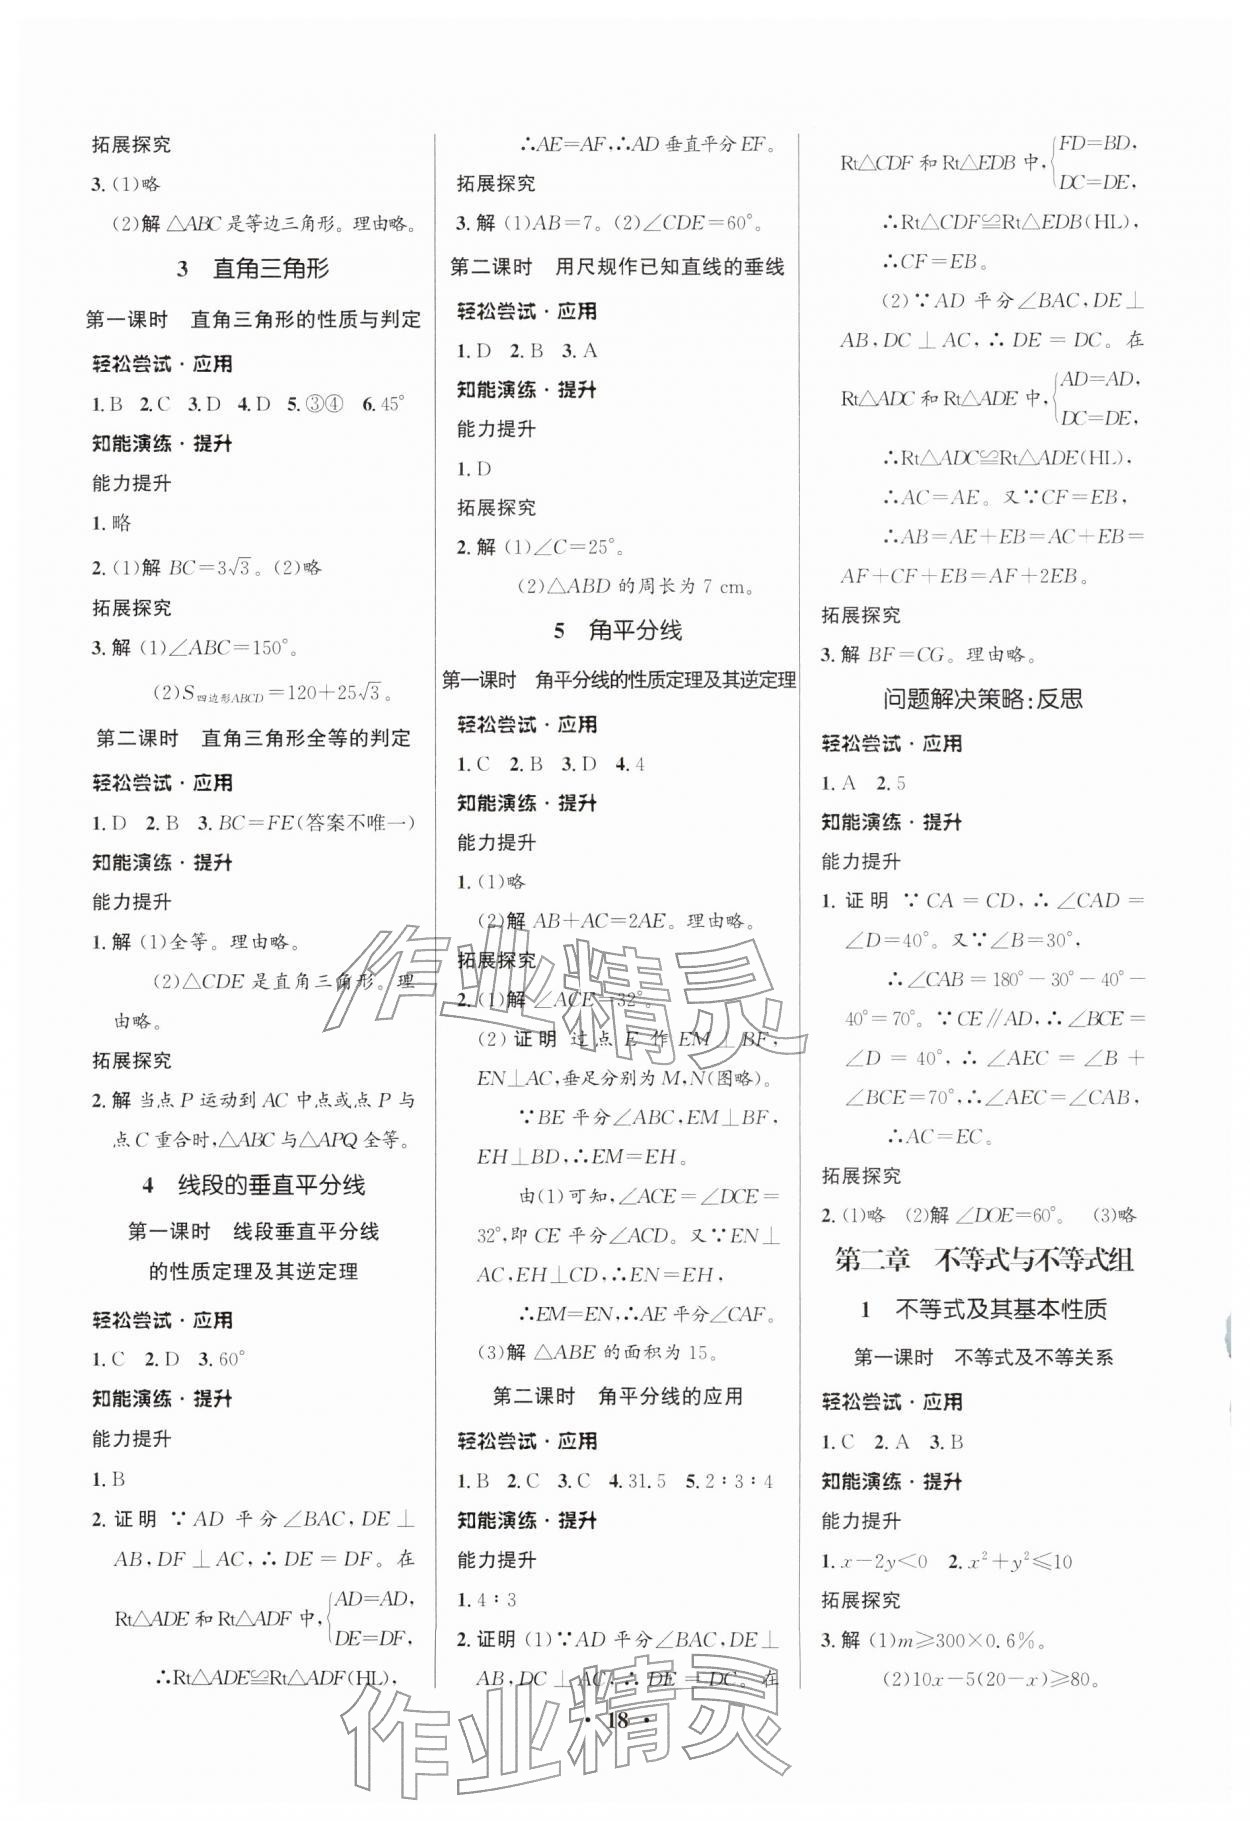 拓展探究
3.(1)略
(2)解 △ABC是等边三角形。理由略。
3 直角三角形
第一课时 直角三角形的性质与判定
轻松尝试·应用
1.B 2.C 3.D 4.D 5.③④ 6.45°
知能演练·提升
能力提升
1.略
2.(1)解 BC=3√3。(2)略
拓展探究
3.解 (1)∠ABC=150°。
(2)S四边形ABCD=120+25√3。
第二课时 直角三角形全等的判定
轻松尝试·应用
1.D 2.B 3.BC=FE(答案不唯一)
知能演练·提升
能力提升
1.解 (1)全等。理由略。
(2)△CDE是直角三角形。理
由略。
拓展探究
2.解 当点P运动到AC中点或点P与
点C重合时,△ABC与△APQ全等。
4 线段的垂直平分线
第一课时 线段垂直平分线
的性质定理及其逆定理
轻松尝试·应用
1.C 2.D 3.60°
知能演练·提升
能力提升
1.B
2.证明 ∵AD平分∠BAC,DE⊥
AB,DF⊥AC,∴DE=DF。在
Rt△ADE和Rt△ADF中,{AD=AD,
DE=DF,
∴Rt△ADE≌Rt△ADF(HL),
∴AE=AF,∴AD垂直平分EF。
拓展探究
3.解 (1)AB=7。(2)∠CDE=60°。
第二课时 用尺规作已知直线的垂线
轻松尝试·应用
1.D 2.B 3.A
知能演练·提升
能力提升
1.D
拓展探究
2.解 (1)∠C=25°。
(2)△ABD的周长为7 cm。
5 角平分线
第一课时 角平分线的性质定理及其逆定理
轻松尝试·应用
1.C 2.B 3.D 4.4
知能演练·提升
能力提升
1.(1)略
(2)解 AB+AC=2AE。理由略。
拓展探究
2.(1)解 ∠ACE=32°。
(2)证明 过点E作EM⊥BF,
EN⊥AC,垂足分别为M,N(图略)。
∵BE平分∠ABC,EM⊥BF,
EH⊥BD,∴EM=EH。
由(1)可知,∠ACE=∠DCE=
32°,即CE平分∠ACD。又∵EN⊥
AC,EH⊥CD,∴EN=EH,
∴EM=EN,∴AE平分∠CAF。
(3)解 △ABE的面积为15。
第二课时 角平分线的应用
轻松尝试·应用
1.B 2.C 3.C 4.31.5 5.2∶3∶4
知能演练·提升
能力提升
1.4∶3
2.证明 (1)∵AD平分∠BAC,DE⊥
AB,DC⊥AC,∴DE=DC。在
Rt△CDF和Rt△EDB中,{FD=BD,
DC=DE,
∴Rt△CDF≌Rt△EDB(HL),
∴CF=EB。
(2)∵AD平分∠BAC,DE⊥
AB,DC⊥AC,∴DE=DC。在
Rt△ADC和Rt△ADE中,{AD=AD,
DC=DE,
∴Rt△ADC≌Rt△ADE(HL),
∴AC=AE。又∵CF=EB,
∴AB=AE+EB=AC+EB=
AF+CF+EB=AF+2EB。
拓展探究
3.解 BF=CG。理由略。
问题解决策略:反思
轻松尝试·应用
1.A 2.5
知能演练·提升
能力提升
1.证明 ∵CA=CD,∴∠CAD=
∠D=40°。又∵∠B=30°,
∴∠CAB=180°-30°-40°-
40°=70°。∵CE∥AD,∴∠BCE=
∠D=40°,∴∠AEC=∠B+
∠BCE=70°,∴∠AEC=∠CAB,
∴AC=EC。
拓展探究
2.(1)略 (2)解 ∠DOE=60°。 (3)略
第二章 不等式与不等式组
1 不等式及其基本性质
第一课时 不等式及不等关系
轻松尝试·应用
1.C 2.A 3.B
知能演练·提升
能力提升
1.x-2y<0 2.x²+y²≤10
拓展探究
3.解 (1)m≥300×0.6%。
(2)10x-5(20-x)≥80。
·18·
作业精灵
作业精灵